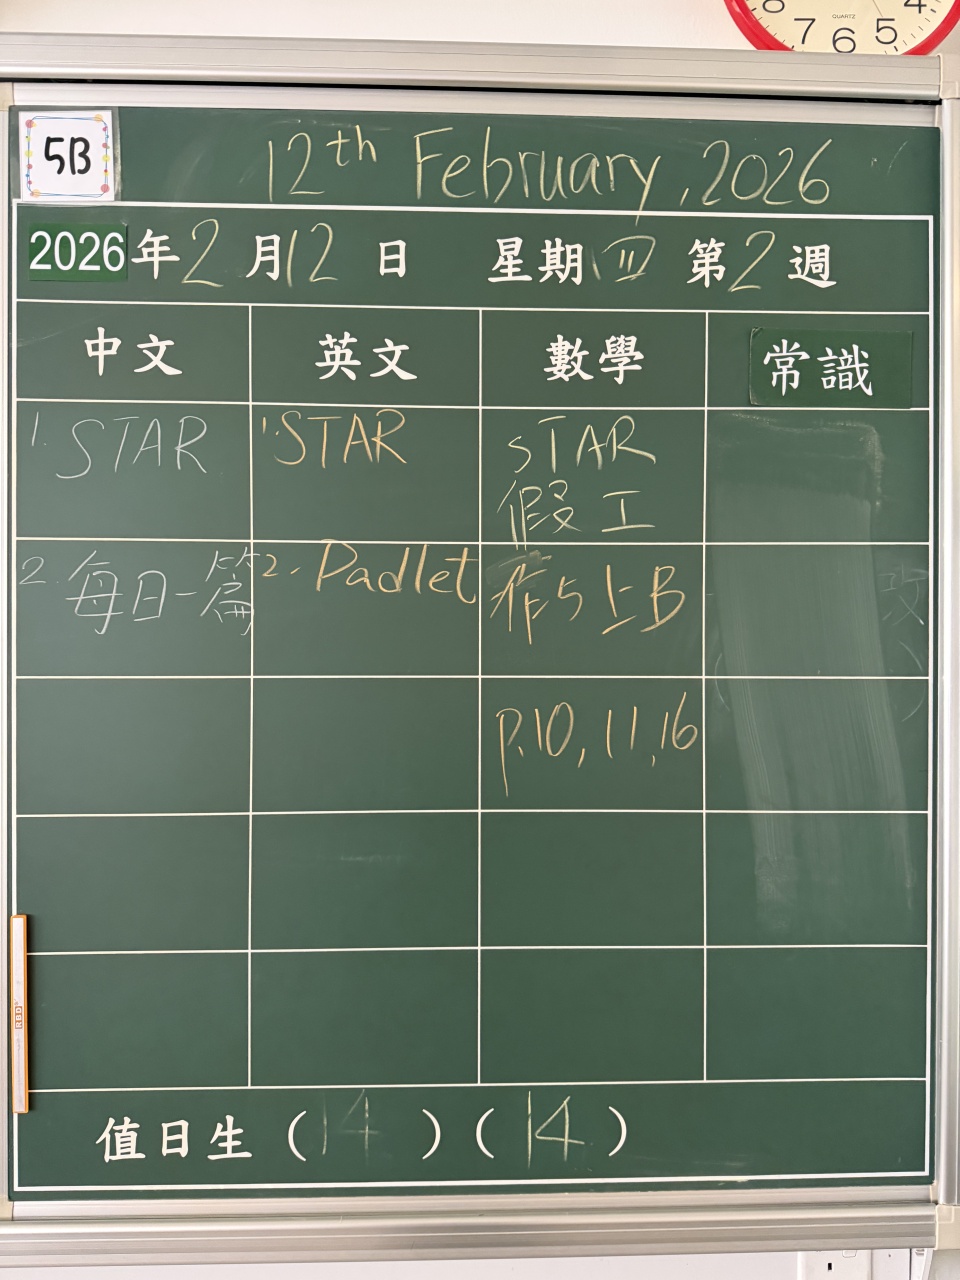 8 7 6 5 4
QUARTZ
5B
12th February, 2026
2026年2月12日 星期四 第2週
中文 英文 數學 常識
1. STAR 1. STAR STAR
假工
2. 每日一篇 2. Padlet 作5上B
p.10, 11, 16
值日生 (14) (14)